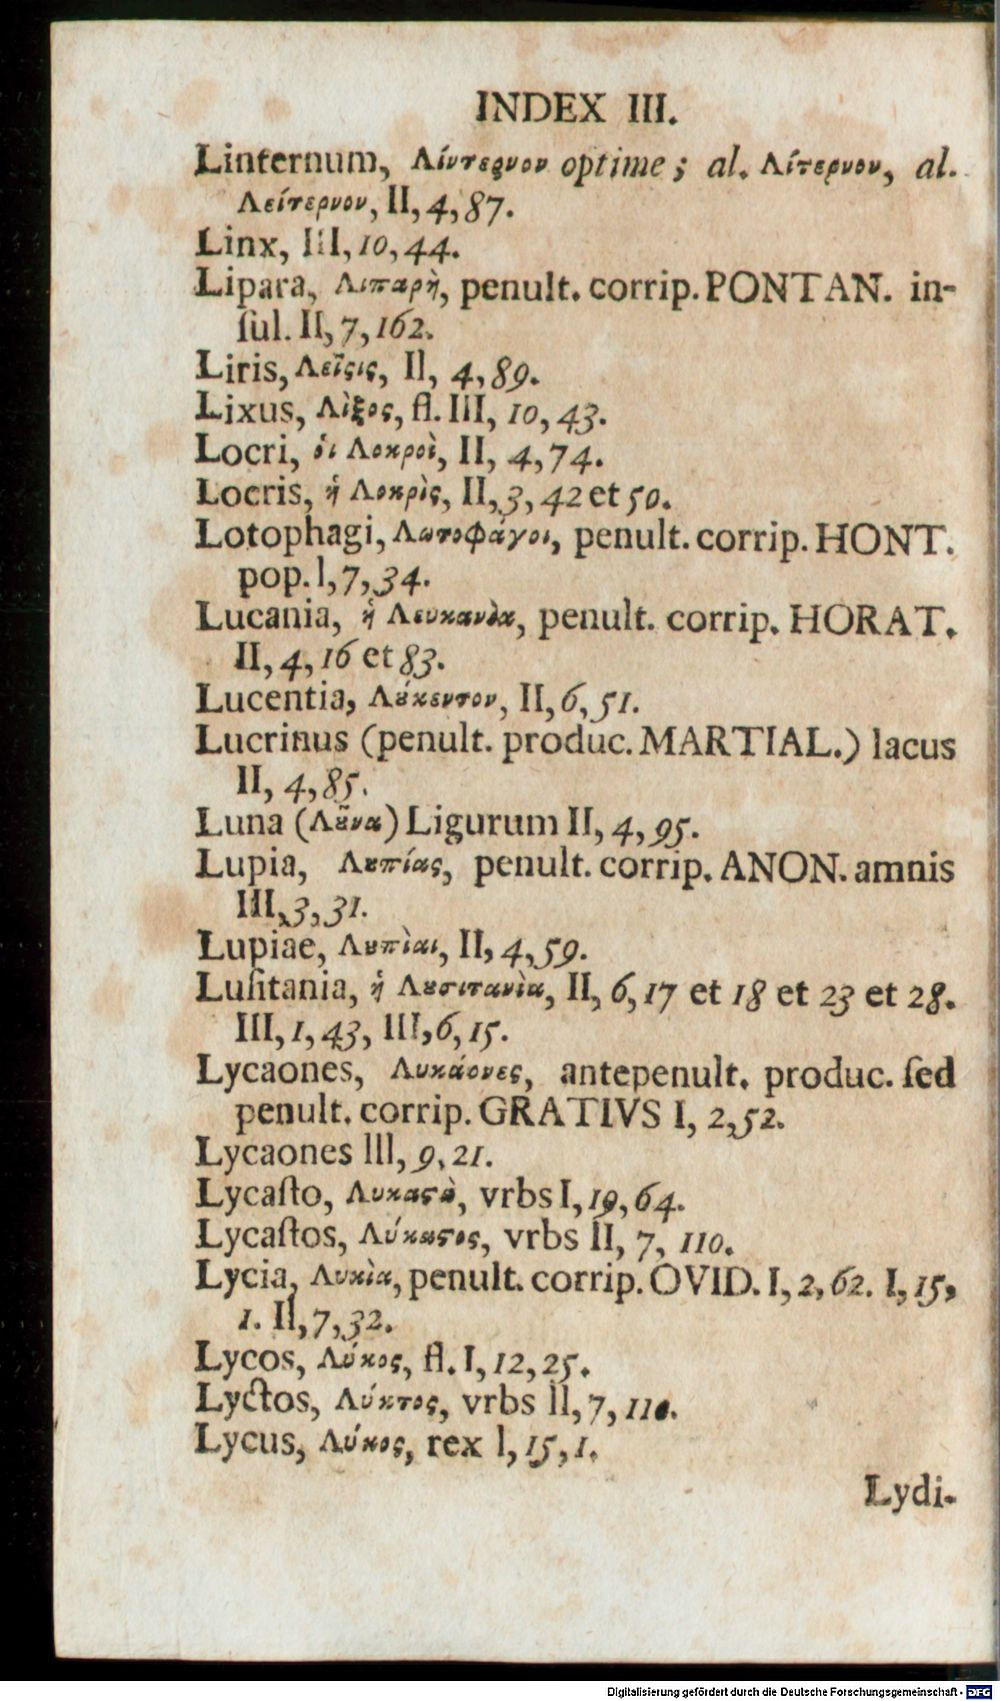 INDEX III.
Linternum, Λίντερνον optime; al. Λίτερνον, al.
Λείτερνον, II, 4, 87.
Linx, III, 10, 44.
Lipara, Λιπαρὴ, penult. corrip. PONTAN. in-
ſul. II, 7, 162.
Liris, Λεῖρις, II, 4, 89.
Lixus, Λὶξος, fl. III, 10, 43.
Locri, ὁι Λοκροὶ, II, 4, 74.
Locris, ἡ Λοκρὶς, II, 3, 42 et 50.
Lotophagi, Λωτοφάγοι, penult. corrip. HONT.
pop. I, 7, 34.
Lucania, ἡ Λευκανὶα, penult. corrip. HORAT.
II, 4, 16 et 83.
Lucentia, Λȣ́κεντον, II, 6, 51.
Lucrinus (penult. produc. MARTIAL.) lacus
II, 4, 85.
Luna (Λȣ͂να) Ligurum II, 4, 95.
Lupia, Λȣπίας, penult. corrip. ANON. amnis
III, 3, 31.
Lupiae, Λȣπὶαι, II, 4, 59.
Luſitania, ἡ Λȣσιτανὶα, II, 6, 17 et 18 et 23 et 28.
III, 1, 43, III, 6, 15.
Lycaones, Λυκάονες, antepenult. produc. ſed
penult. corrip. GRATIVS I, 2, 52.
Lycaones III, 9, 21.
Lycaſto, Λυκαϛὼ, vrbs I, 19, 64.
Lycaſtos, Λύκαϛος, vrbs II, 7, 110.
Lycia, Λυκὶα, penult. corrip. OVID. I, 2, 62. I, 15,
1. II, 7, 32.
Lycos, Λύκος, fl. I, 12, 25.
Lyctos, Λύκτος, vrbs II, 7, 110.
Lycus, Λύκος, rex I, 15, 1.
Lydi-
Digitalisierung gefördert durch die Deutsche Forschungsgemeinschaft - DFG